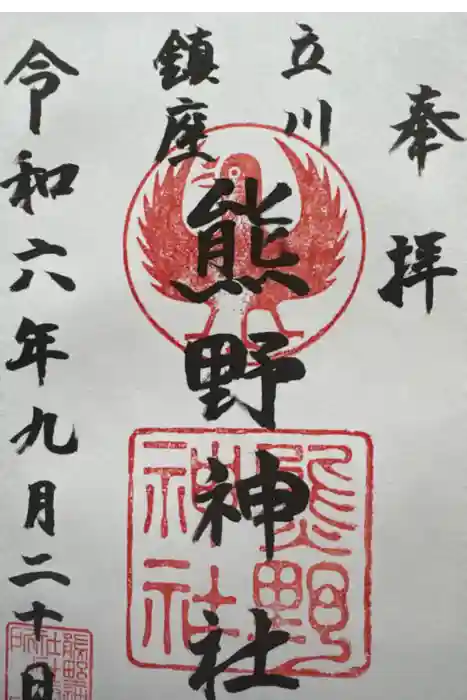 奉拝
立川
鎮座
熊野神社
令和六年九月二十日
熊野
神社